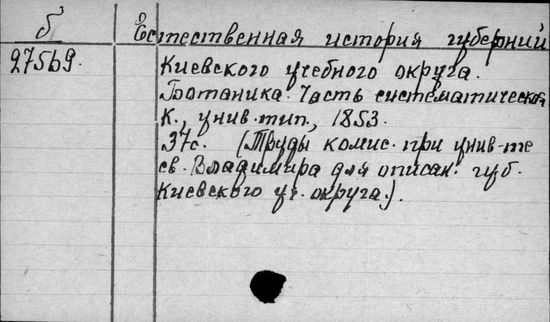 б
Естественная история губерний
27569.
Киевского учебного округа.
Ботаника. Часть систематическая
К., унив. тип., 1853.
37с. (Труды комис. при унив-те
св. Владимира для описан. губ.
Киевского уч. округа.).